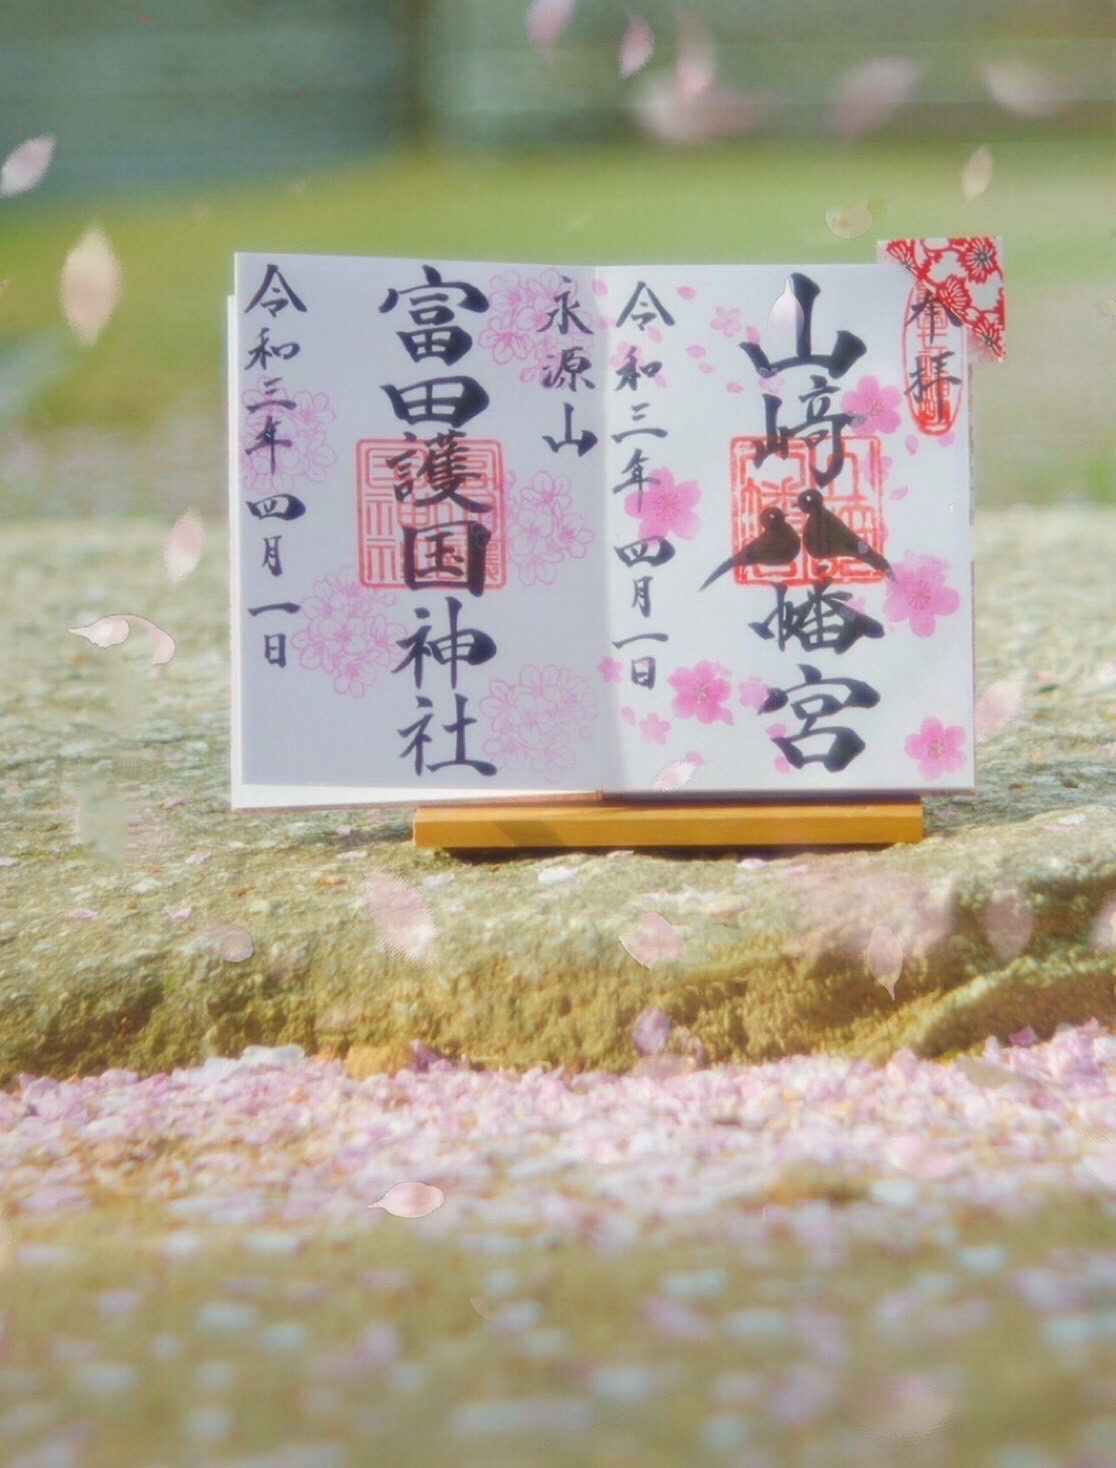 奉拝
山﨑八幡宮
令和三年四月一日
永源山
富田護国神社
令和三年四月一日